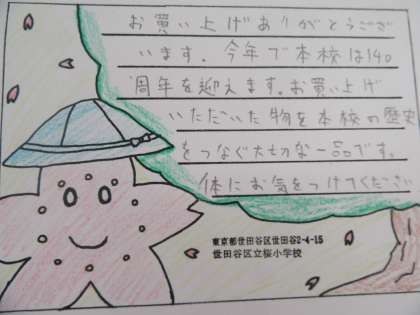 お買い上げありがとうござ
います。今年で本校は140
周年を迎えます。お買い上げ
いただいた物を本校の歴史
をつなぐ大切な一品です。
体にお気をつけてください
東京都世田谷区世田谷2-4-15
世田谷区立桜小学校